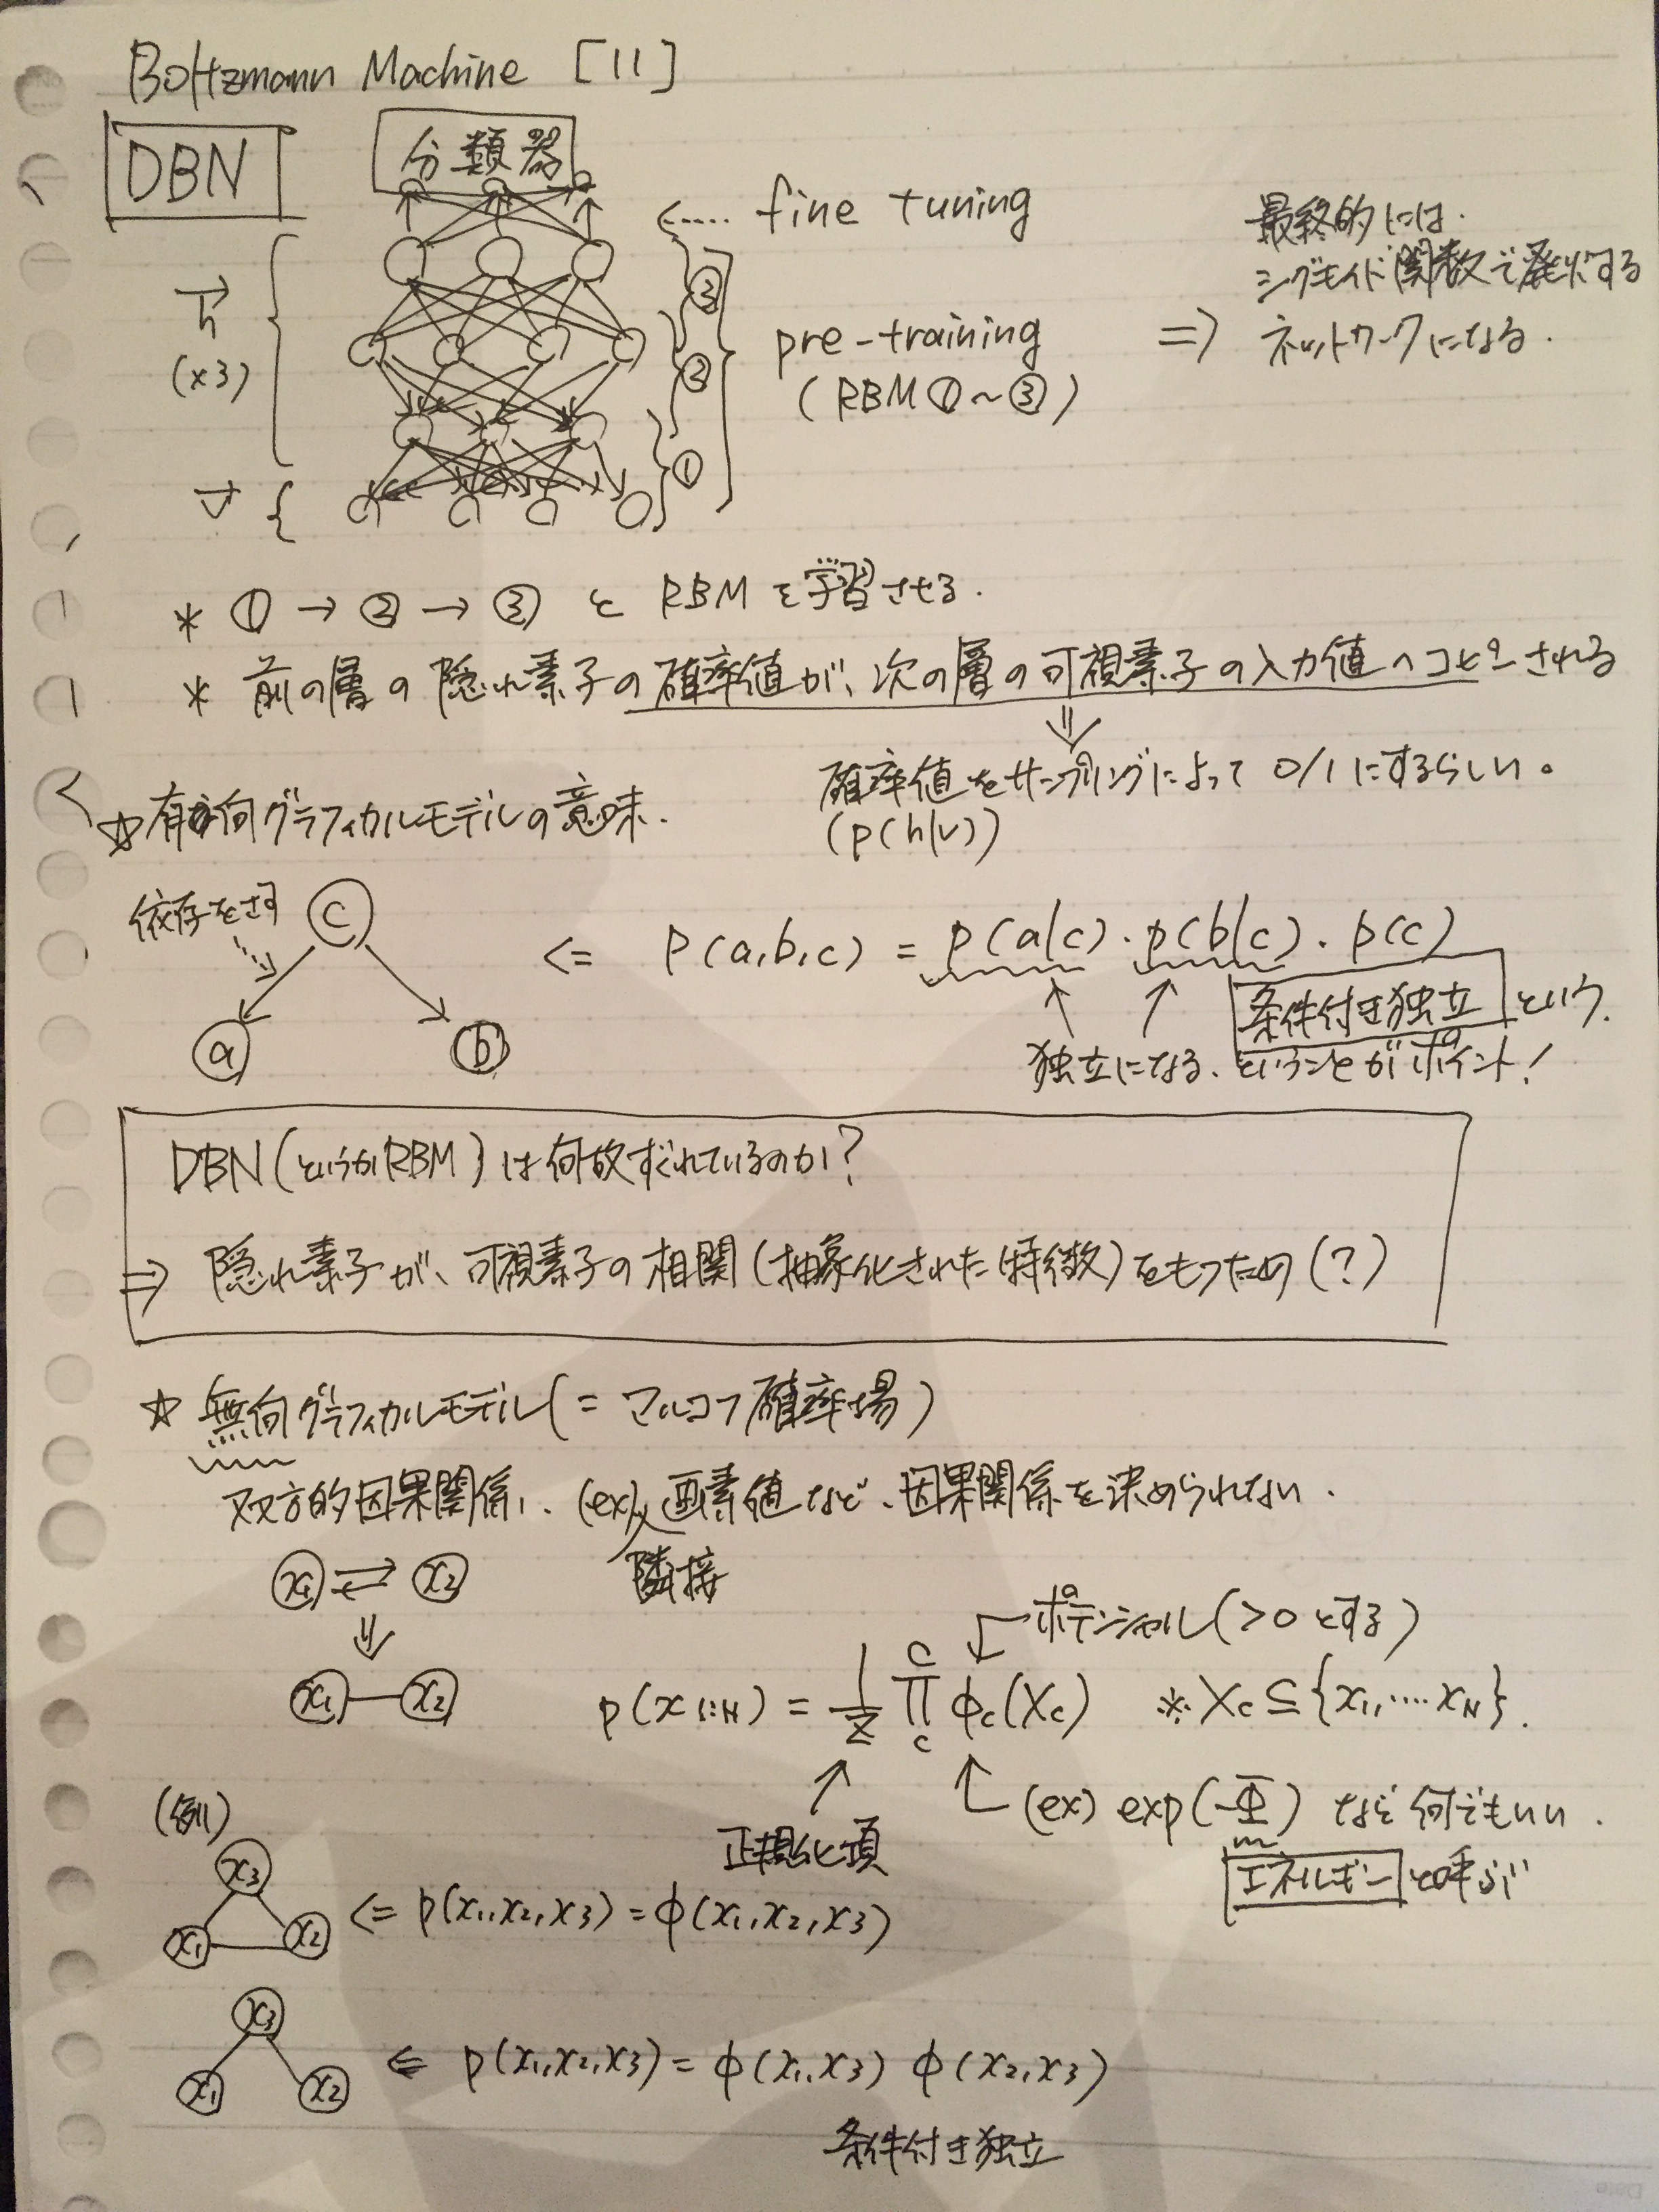 Boltzmann Machine [11]
DBN
分類器
<---- fine tuning
最終的には
シグモイド関数で発火する
ネットワークになる.
h
(×3)
③
②
①
pre-training
(RBM①~③)
⇒
v
* ①→②→③ と RBMを学習させる.
* 前の層の隠れ素子の確率値が、次の層の可視素子の入力値へコピーされる
⇓
確率値をサンプリングによって 0/1にするらしい。
(p(h|v))
☆有向グラフィカルモデルの意味.
依存をさす
c
a
b
<= P(a,b,c) = p(a|c)・p(b|c)・p(c)
条件付き独立 という.
独立になる、ということがポイント!
DBN(というかRBM)は何故すぐれているのか?
⇒ 隠れ素子が、可視素子の相関(抽象化された特徴)をもつため(?)
☆ 無向グラフィカルモデル(= マルコフ確率場)
双方的因果関係、(ex) 隣接画素値など、因果関係を決められない.
x1 ⇄ x2
⇓
x1 — x2
ポテンシャル(>0とする)
p(x1:N) = 1/Z ∏ φc(Xc) ※ Xc ⊆ {x1,....xN}.
正規化項
(ex) exp(-Φ) など何でもいい.
エネルギー と呼ぶ
(例)
x3
x1
x2
<= p(x1,x2,x3) = φ(x1,x2,x3)
x3
x1
x2
<= p(x1,x2,x3) = φ(x1,x3) φ(x2,x3)
条件付き独立